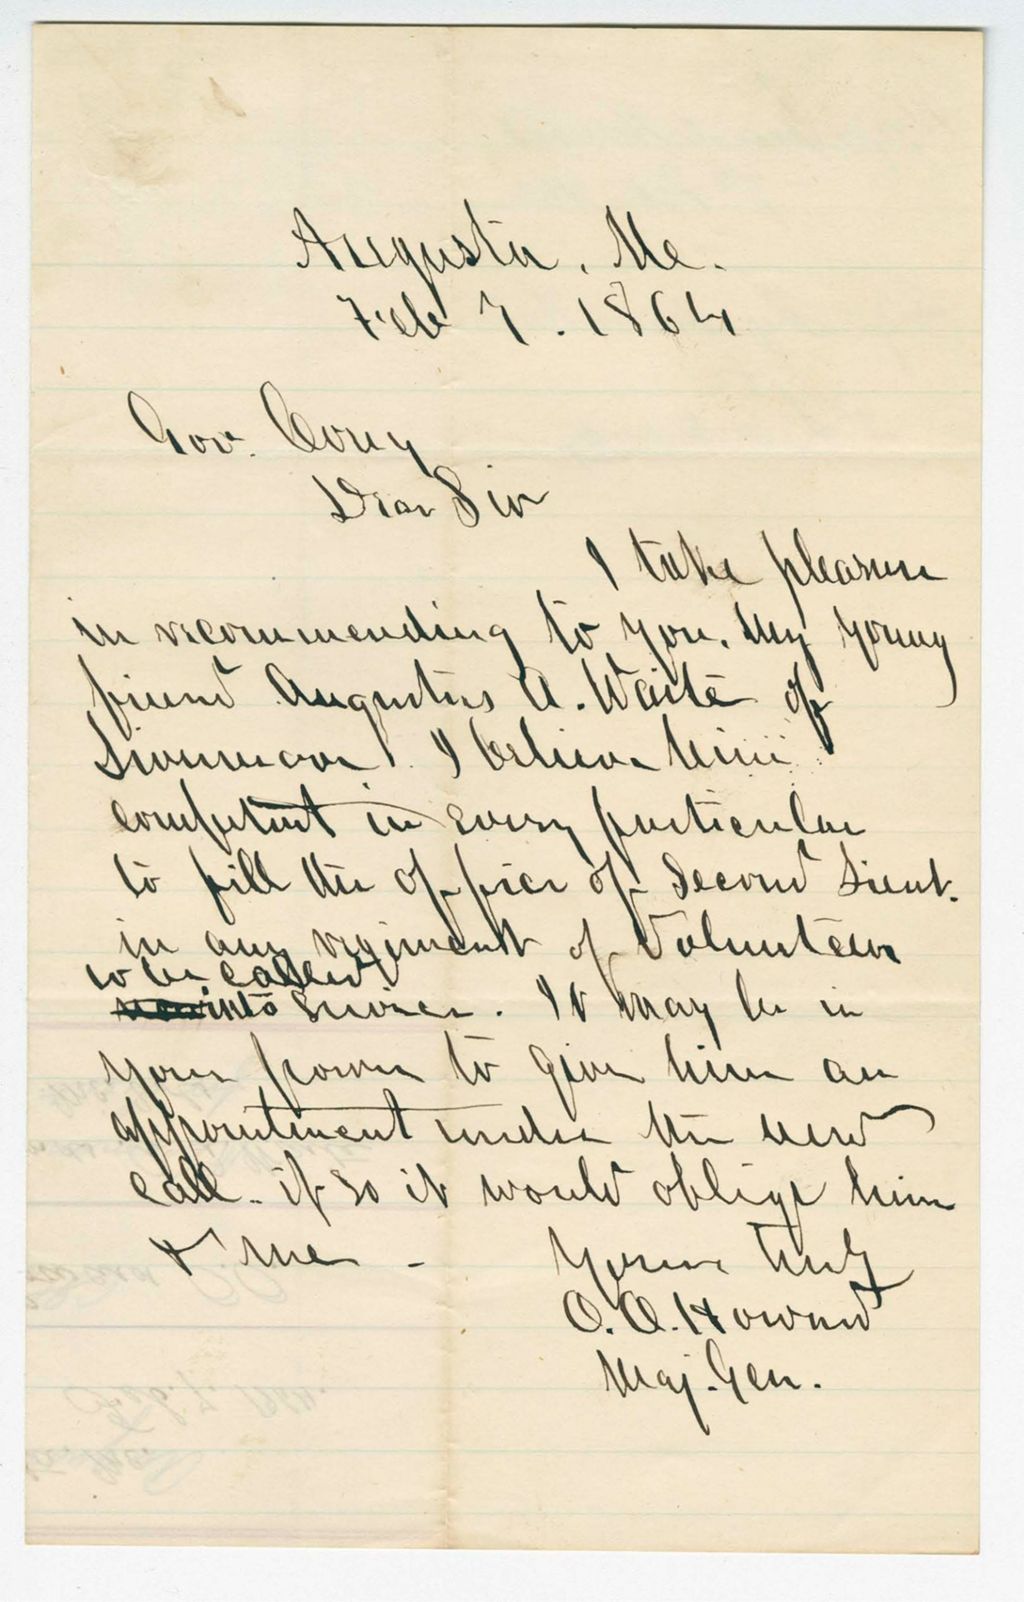 Augusta, Me.
Feb 7. 1864
Gov. Cony
Dear Sir
I take pleasure
in recommending to you, my young
friend Augustus A. Waite of
I believe him
competent in every particular
to fill the office of Second Lieut.
in any regiment of Volunteers
to be called
into service. It may be in
your power to give him an
appointment under the new
call. if so it would oblige him
& me -
Yours truly
O. O. Howard
Maj. Gen.